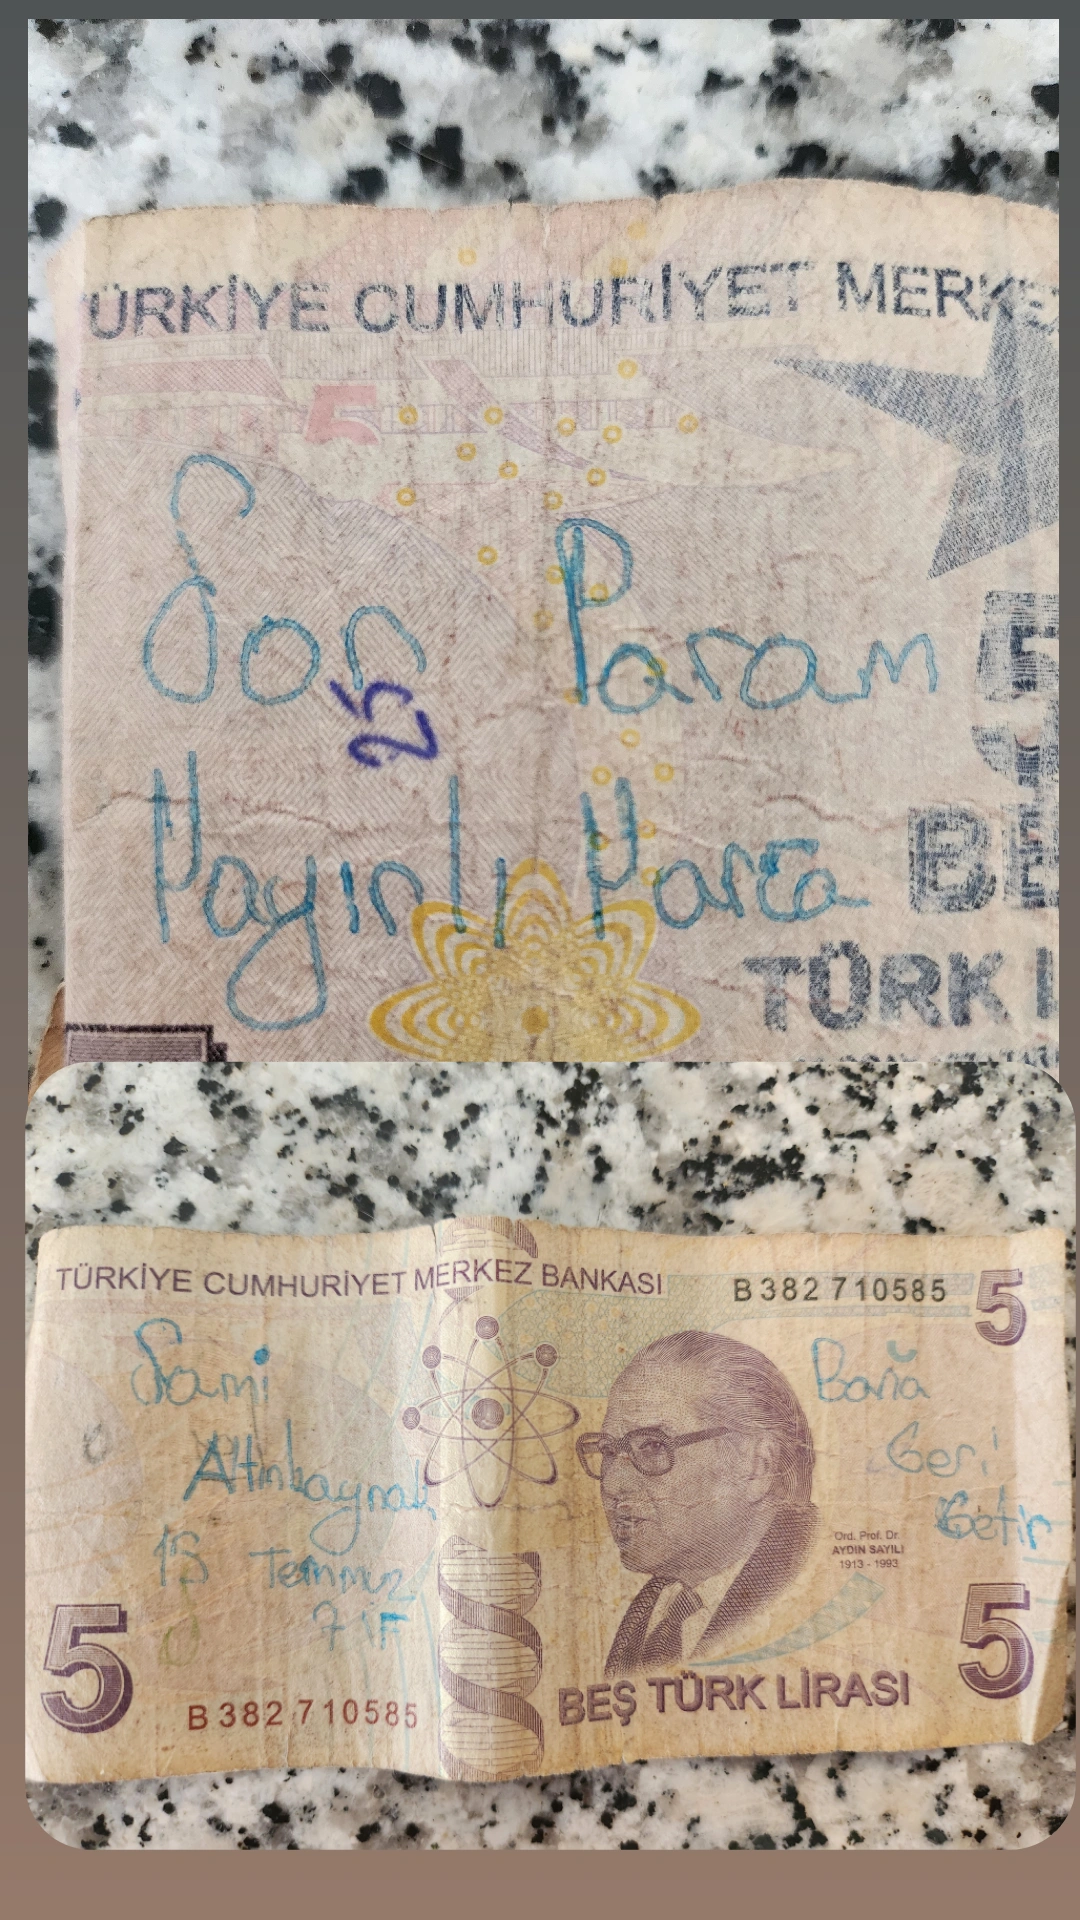 TÜRKİYE CUMHURİYET MERKE
5
5
Son Param
25
Hayırlı Harca
BE
TÜRK L
TÜRKİYE CUMHURİYET MERKEZ BANKASI
B382 710585
5
Sami
Altınbaynak
15 Temmuz
7 İF
Bana
Geri
Getir
Ord. Prof. Dr.
AYDIN SAYILI
1913 - 1993
5
B382 710585
BEŞ TÜRK LİRASI
5